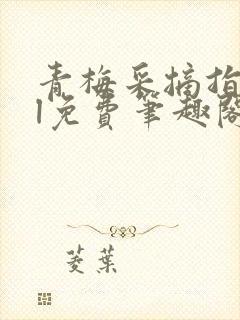 青梅采摘指
l免费笔趣阁
菱葉